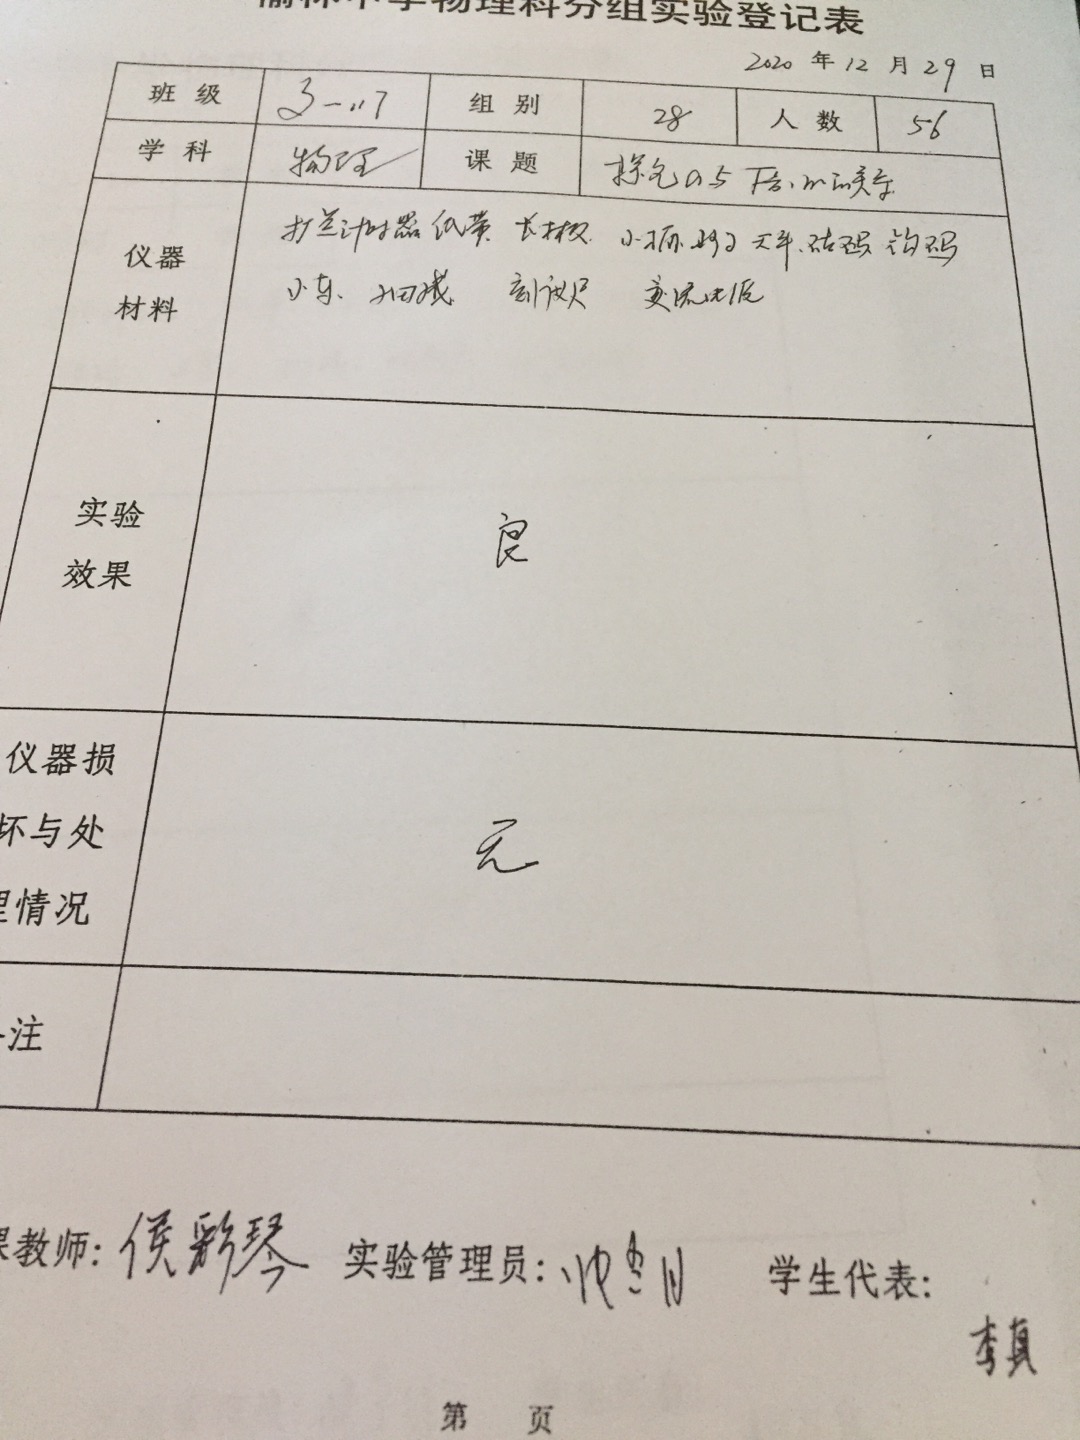 榆林中学物理科分组实验登记表
2020 年 12 月 29 日
班 级 组 别 28 人 数 56
学 科 物理 课 题 探究a与F合、m的关系
仪器 打点计时器 纸带 长木板 天平 砝码 钩码
材料 小车、细线 刻度尺 交流电源
实验
效果 良
仪器损
坏与处
理情况 无
备注
课教师: 侯彩琴 实验管理员: 学生代表:
李真
第 页